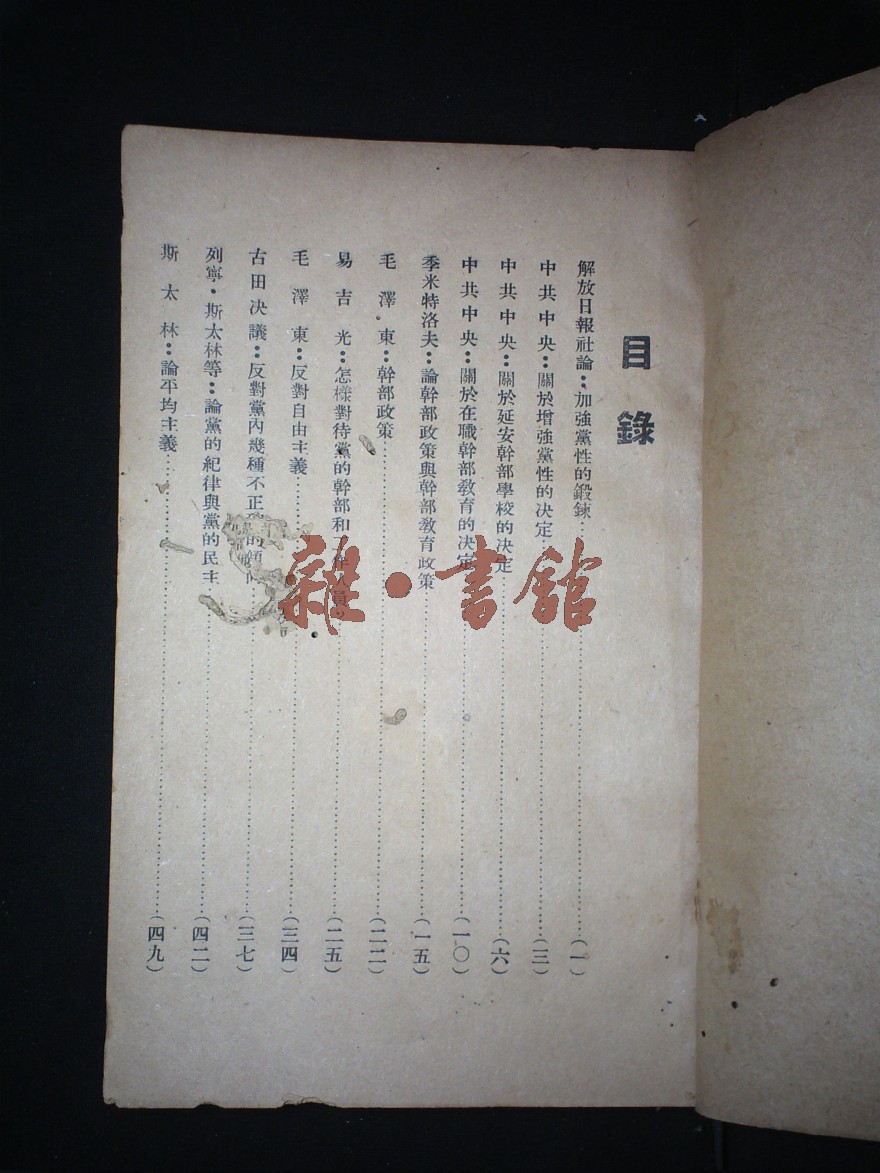 目錄
解放日報社論：加強黨性的鍛鍊……（一）
中共中央：關於增強黨性的決定……（三）
中共中央：關於延安幹部學校的決定……（六）
中共中央：關於在職幹部教育的決定……（一〇）
季米特洛夫：論幹部政策與幹部教育政策……（一五）
毛澤東：幹部政策……（二二）
易吉光：怎樣對待黨的幹部和……（二五）
毛澤東：反對自由主義……（三四）
古田決議：反對黨內幾種不正……（三七）
列寧·斯太林等：論黨的紀律與黨的民主……（四二）
斯太林：論平均主義……（四九）
雜·書館